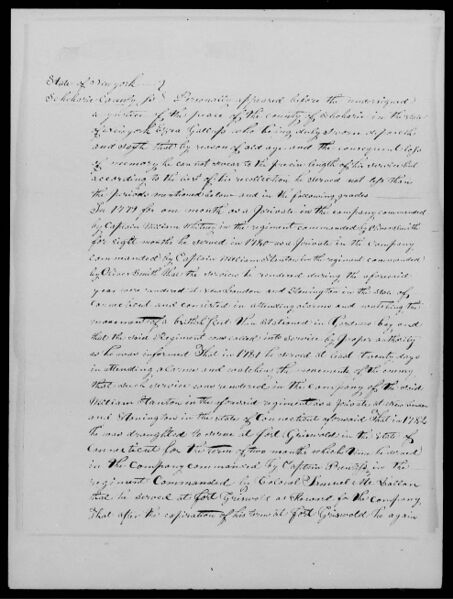 State of New york
Schoharie County ss Personally appeared before the undersigned
a justice of the peace of the county of Schoharie in the
of Newyork Ezra Gallup who being duly sworn deposeth
and saith that by reason of old age and the consequent loss
of memory he cannot swear to the precise length of his service but
according to the best of his recollection he served not less than
the periods mentioned below and in the following grades
In 1779 for one month as a private in the company commanded
by Captain William Whitney in the regiment commanded by Oliver Smith
for eight months he served in 1780 as a private in the company
commanded by Captain William Stanton in the regiment commanded
by Oliver Smith that the service so rendered during the aforesaid
year were rendered at Newlondon and Stonington in the state of
Connecticut and consisted in attending alarms and watching the
movement of a british fleet then stationed in Gardners bay and
that the said Regiment was called into service by proper authority
as he was informed That in 1781 he served at least twenty days
in attending alarms and watching the movements of the enemy
that such service was rendered in the company of the said
William Stanton in the aforesaid regiment as a private at Newlondon
and Stonington in the state of Connecticut aforesaid That in 1782
he was draughted to serve at fort Griswold in the state of
Connecticut for the term of two months which time he served
in the company commanded by Captain in the
regiment Commanded by Colonel Samuel Mc Lallan
that he served at fort Griswold as Steward for the Company
That after the expiration of his term at fort Griswold he again